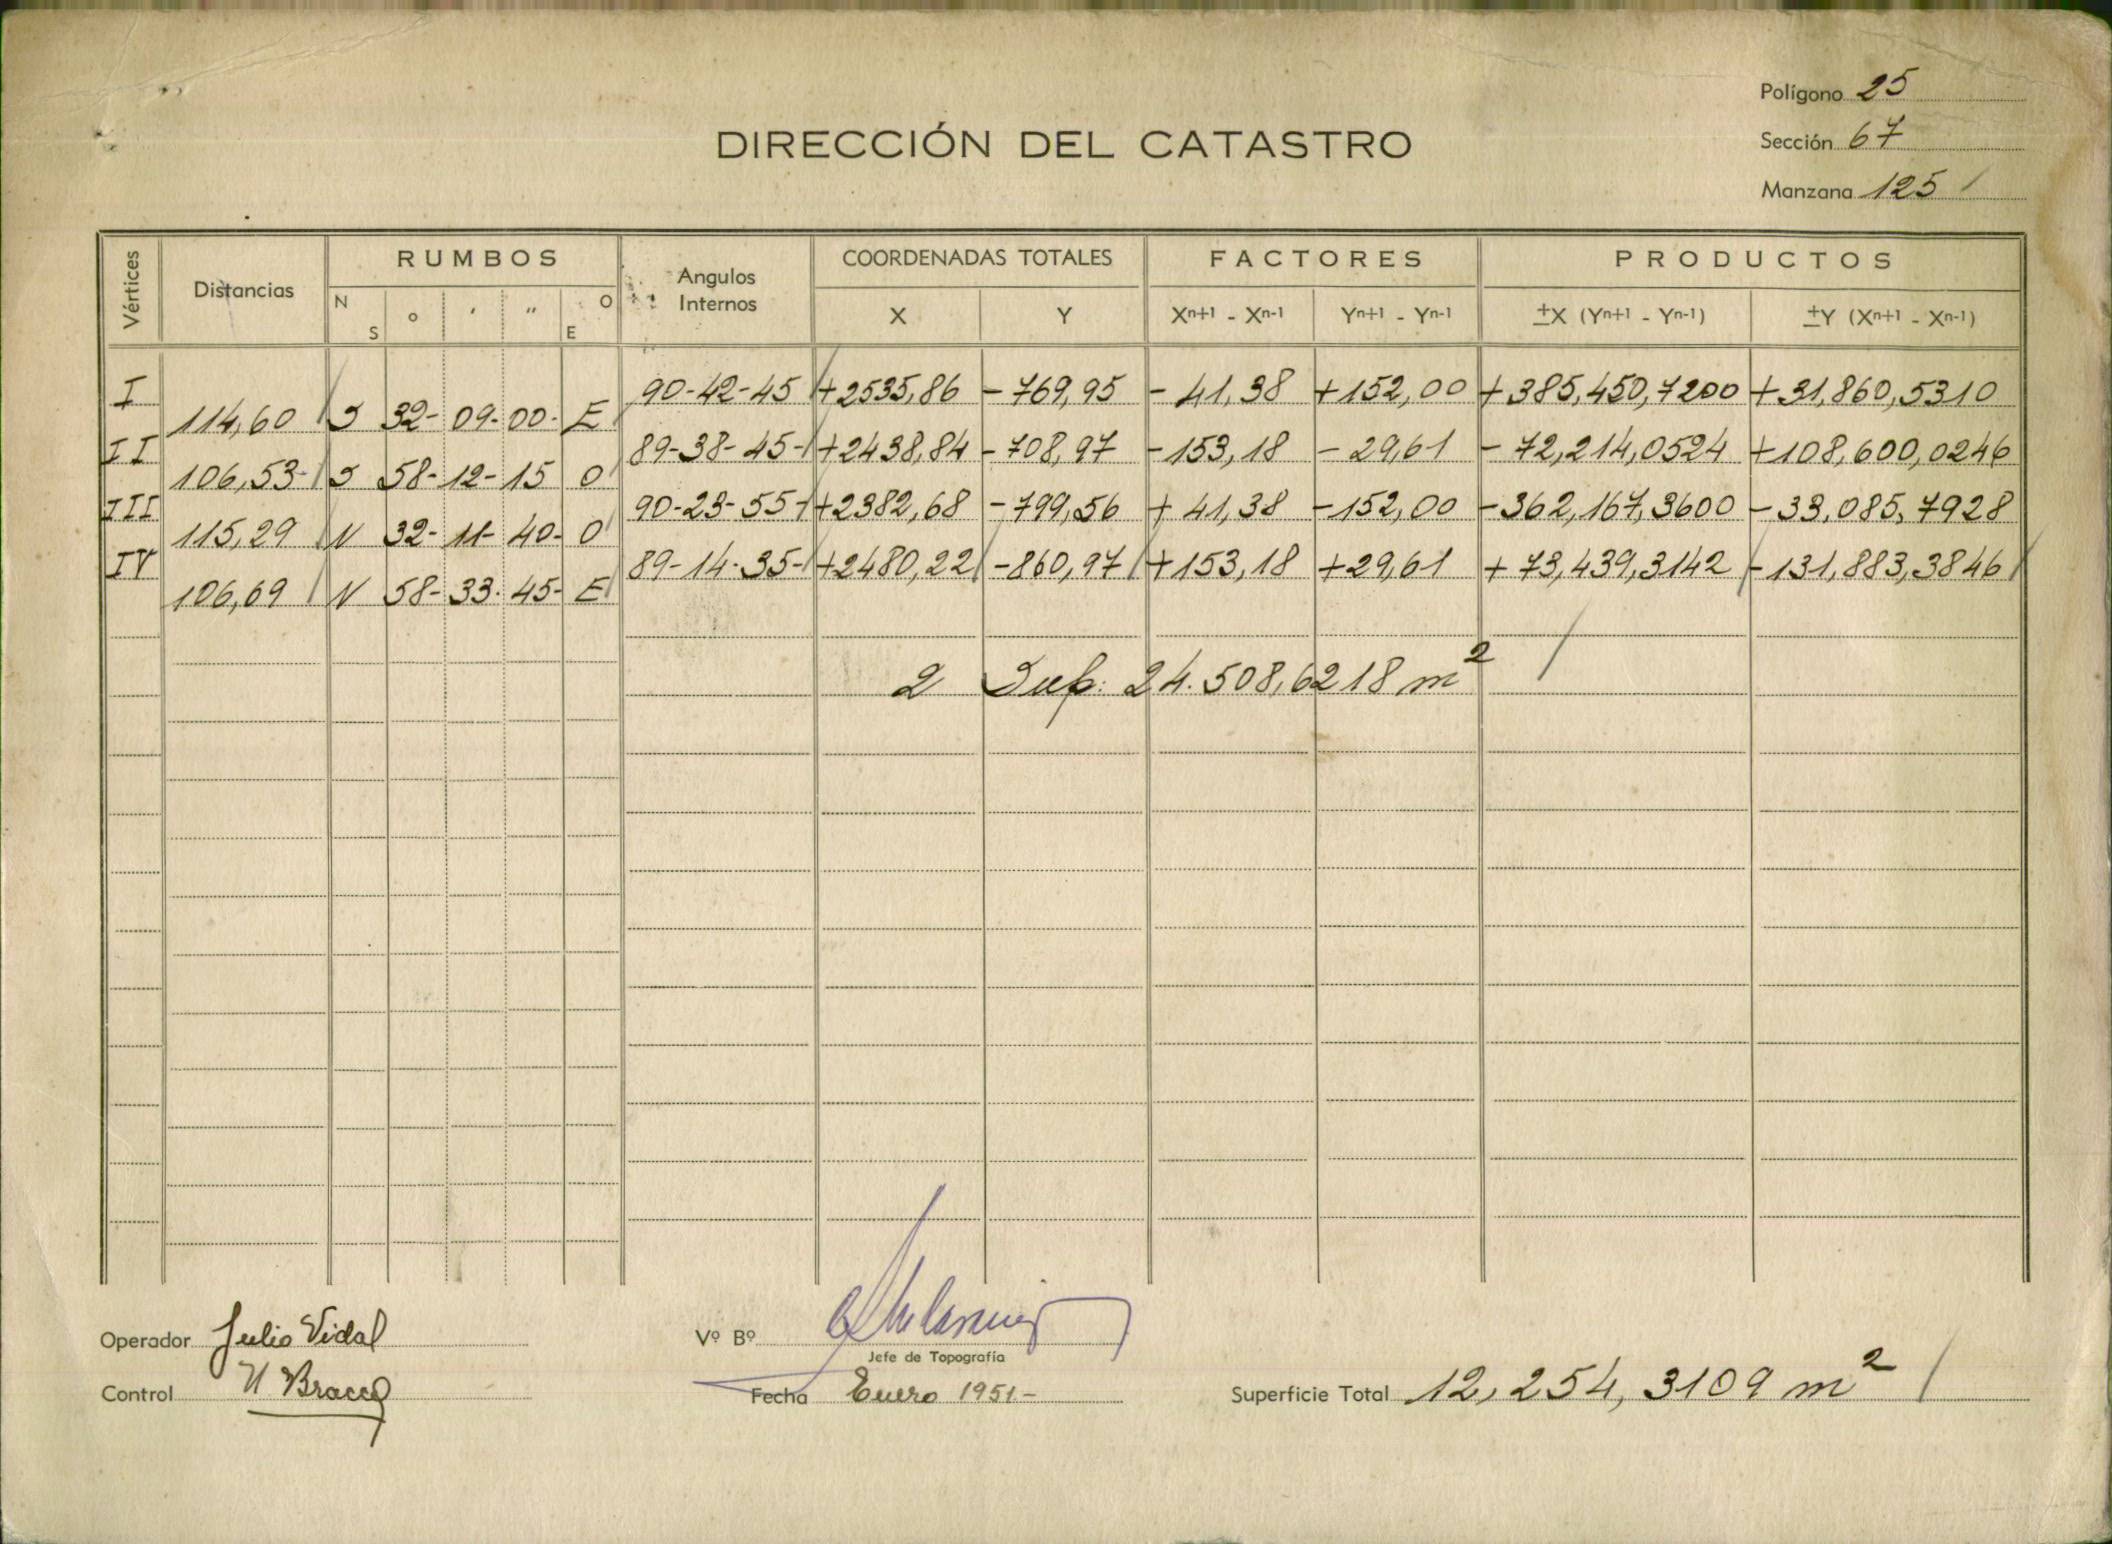 Polígono 25
DIRECCIÓN DEL CATASTRO
Sección 67
Manzana 125
Vértices Distancias RUMBOS Angulos Internos COORDENADAS TOTALES FACTORES PRODUCTOS
N S ° ' " O E X Y Xn+1 - Xn-1 Yn+1 - Yn-1 ±X (Yn+1 - Yn-1) ±Y (Xn+1 - Xn-1)
I 90-42-45 +2535,86 -769,95 -41,38 +152,00 +385,450,7200 +31,860,5310
114,60 S 32-09-00- E
II 89-38-45- +2438,84 -708,97 -153,18 -29,61 -72,214,0524 +108,600,0246
106,53- S 58-12-15 O
III 90-23-55- +2382,68 -799,56 +41,38 -152,00 -362,167,3600 -33,085,7928
115,29 N 32-11-40- O
IV 89-14-35- +2480,22 -860,97 +153,18 +29,61 +73,439,3142 -131,883,3846
106,69 N 58-33-45- E
2 Sup: 24.508,6218 m²
Operador Julio Vidal
Vº Bº
Jefe de Topografía
Control Bracco
Fecha Enero 1951.-
Superficie Total 12,254,3109 m²